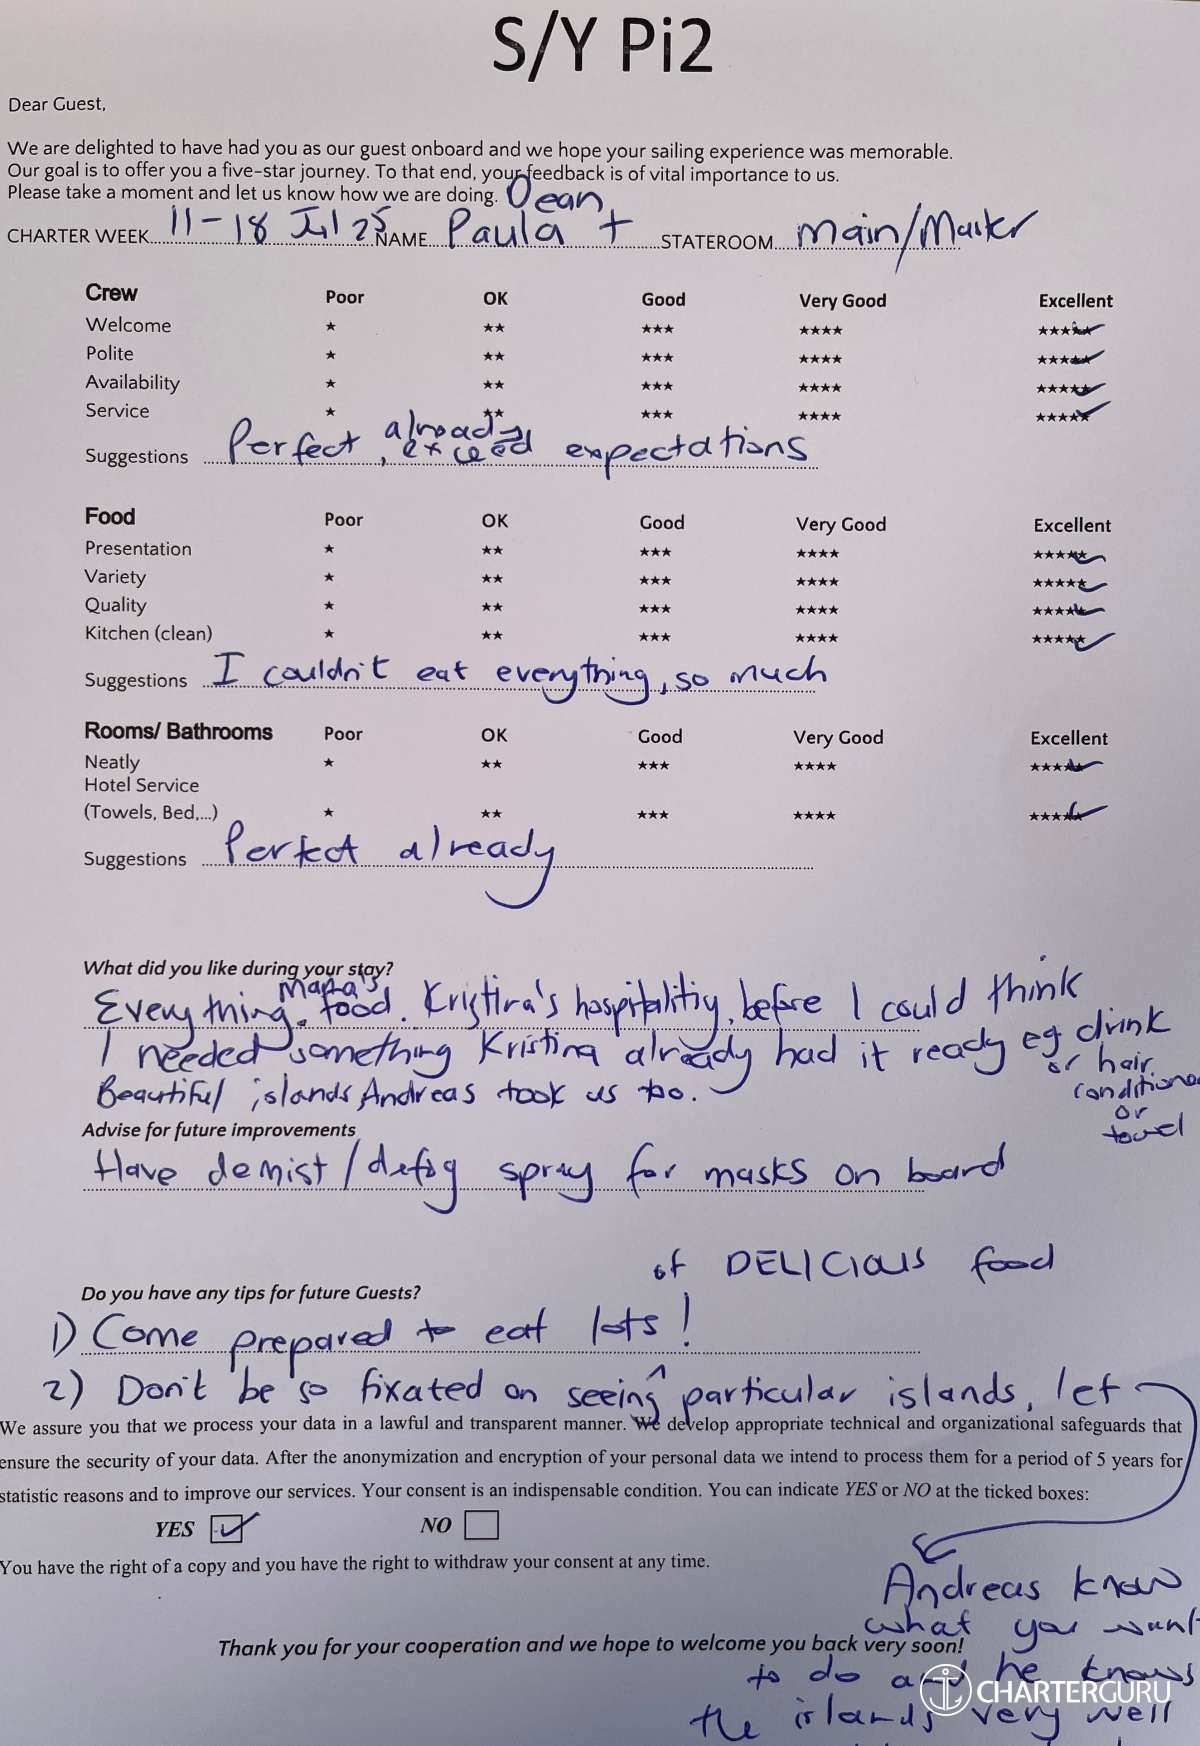 S/Y Pi2
Dear Guest,
We are delighted to have had you as our guest onboard and we hope your sailing experience was memorable.
Our goal is to offer you a five-star journey. To that end, your feedback is of vital importance to us.
Please take a moment and let us know how we are doing.
Dean
CHARTER WEEK 11-18 Jul 25 NAME Paula + STATEROOM Main/Master
Crew Poor OK Good Very Good Excellent
Welcome ★ ★★ ★★★ ★★★★ ★★★★★ ✓
Polite ★ ★★ ★★★ ★★★★ ★★★★★ ✓
Availability ★ ★★ ★★★ ★★★★ ★★★★★ ✓
Service ★ ★★ ★★★ ★★★★ ★★★★★ ✓
already
Suggestions Perfect, exceed expectations
Food Poor OK Good Very Good Excellent
Presentation ★ ★★ ★★★ ★★★★ ★★★★★ ✓
Variety ★ ★★ ★★★ ★★★★ ★★★★★ ✓
Quality ★ ★★ ★★★ ★★★★ ★★★★★ ✓
Kitchen (clean) ★ ★★ ★★★ ★★★★ ★★★★★ ✓
Suggestions I couldn't eat everything, so much
Rooms/ Bathrooms Poor OK Good Very Good Excellent
Neatly ★ ★★ ★★★ ★★★★ ★★★★★ ✓
Hotel Service
(Towels, Bed,...) ★ ★★ ★★★ ★★★★ ★★★★★ ✓
Suggestions Perfect already
What did you like during your stay?
Everything. food. Kristina's hospitalitiy, before I could think
I needed something Kristina already had it ready eg drink
or hair
conditioner
or
towel
Beautiful islands Andreas took us too.
Advise for future improvements
Have demist/defog spray for masks on board
of DELICIOUS food
Do you have any tips for future Guests?
1) Come prepared to eat lots!
2) Don't be so fixated on seeing ^ particular islands, let
We assure you that we process your data in a lawful and transparent manner. We develop appropriate technical and organizational safeguards that
ensure the security of your data. After the anonymization and encryption of your personal data we intend to process them for a period of 5 years for
statistic reasons and to improve our services. Your consent is an indispensable condition. You can indicate YES or NO at the ticked boxes:
YES ✓ NO
You have the right of a copy and you have the right to withdraw your consent at any time.
Andreas know
what you want
Thank you for your cooperation and we hope to welcome you back very soon!
to do and he knows
the islands very well
CHARTERGURU